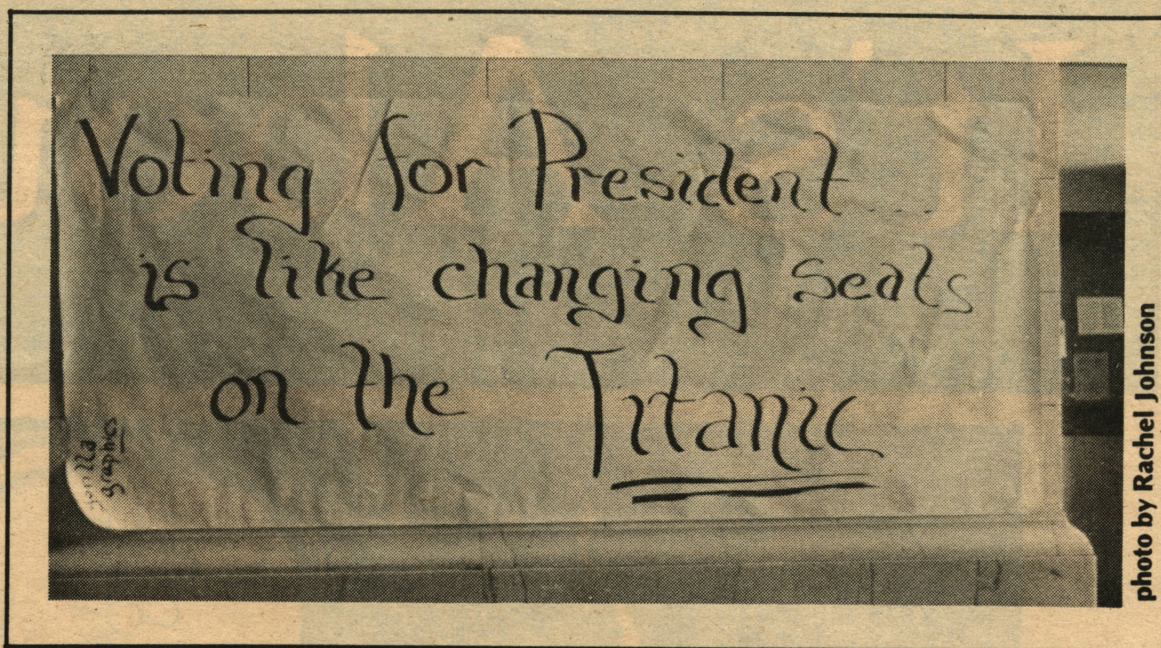 Voting for President
is like changing seats
on the Titanic
gorilla
graphics
photo by Rachel Johnson